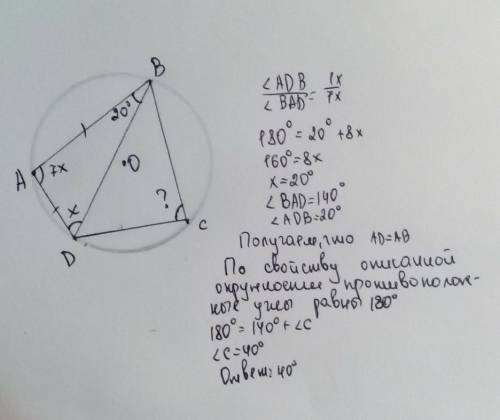 B
20°
∠ADB / ∠BAD = 1x / 7x
180° = 20° + 8x
160° = 8x
x = 20°
∠BAD = 140°
∠ADB = 20°
A
7x
O
x
?
C
D
Получаем, что AD = AB
По свойству описанной
окружности противополож-
ные углы равны 180°
180° = 140° + ∠C
∠C = 40°
Ответ: 40°